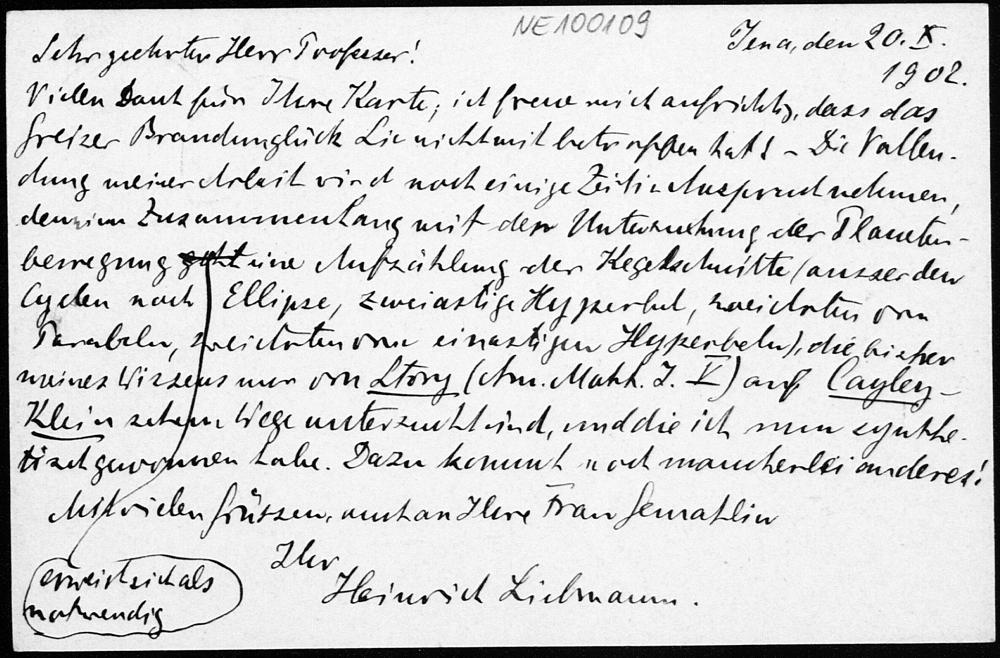 NE100109
Jena, den 20. X.
1902.
Sehr geehrter Herr Professor!
Vielen Dank für Ihre Karte; ich freue mich aufrichtig, dass das
Greizer Brandunglück Sie nicht mit betroffen hat! – Die Vollen-
dung meiner Arbeit wird noch einige Zeit in Anspruch nehmen,
denn im Zusammenhang mit der Untersuchung der Planeten-
bewegung geht eine Aufzählung der Kegelschnitte (ausser den
Cyclen noch Ellipse, zweiastige Hyperbel, zwei Arten von
Parabeln, zwei Arten von einastigen Hyperbeln), die bisher
meines Wissens nur von Story (Am. Math. J. V) auf Cayley-
Klein schem Wege untersucht sind, und die ich nun synthe-
tisch gewonnen habe. Dazu kommt noch mancherlei anderes!
Mit vielen Grüssen, auch an Ihre Frau Gemahlin
Ihr
Heinrich Liebmann.
erweist sich als
notwendig